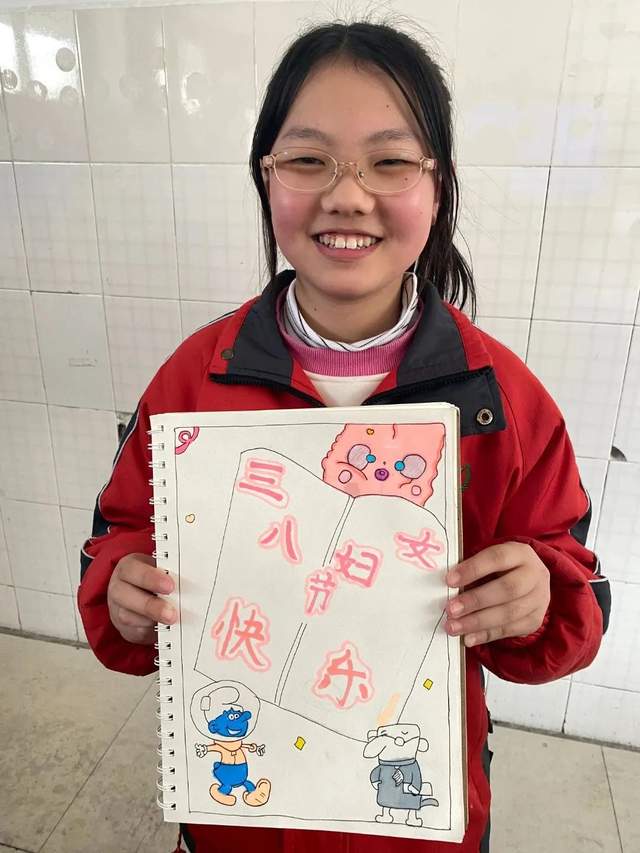 三八妇女节
快乐